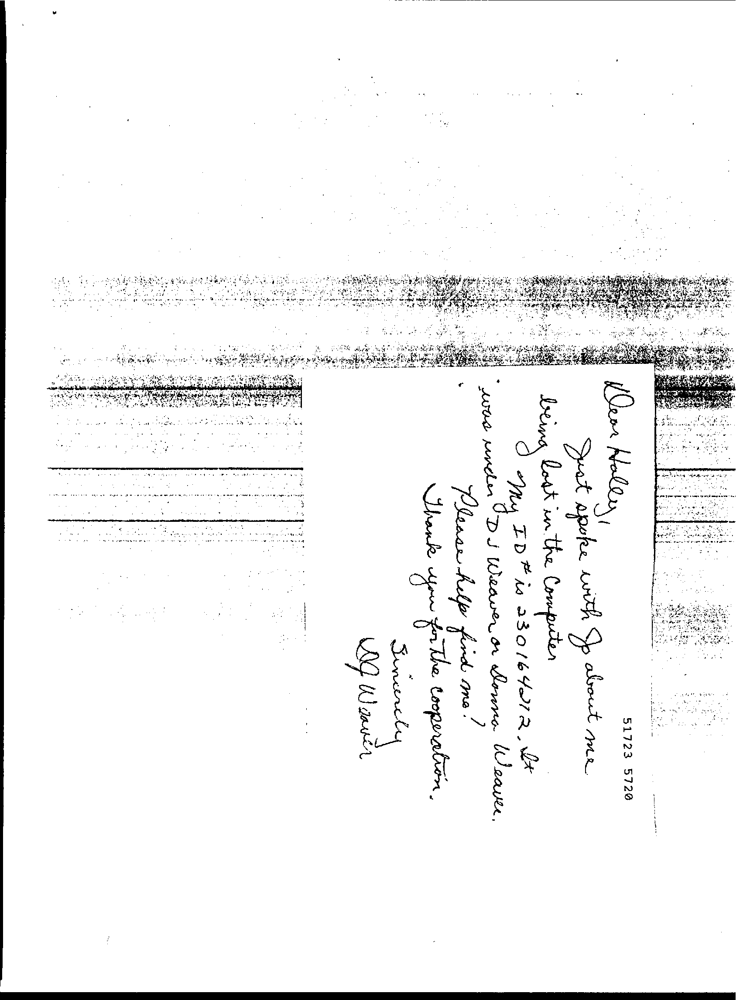 51723 5720
Dear Halley,
Just spoke with Jo about me
being lost in the Computer
My ID # is 230164212. It
was under DJ Weaver or Donna Weaver.
Please help find me!
Thank you for the cooperation.
Sincerely
DJ Weaver